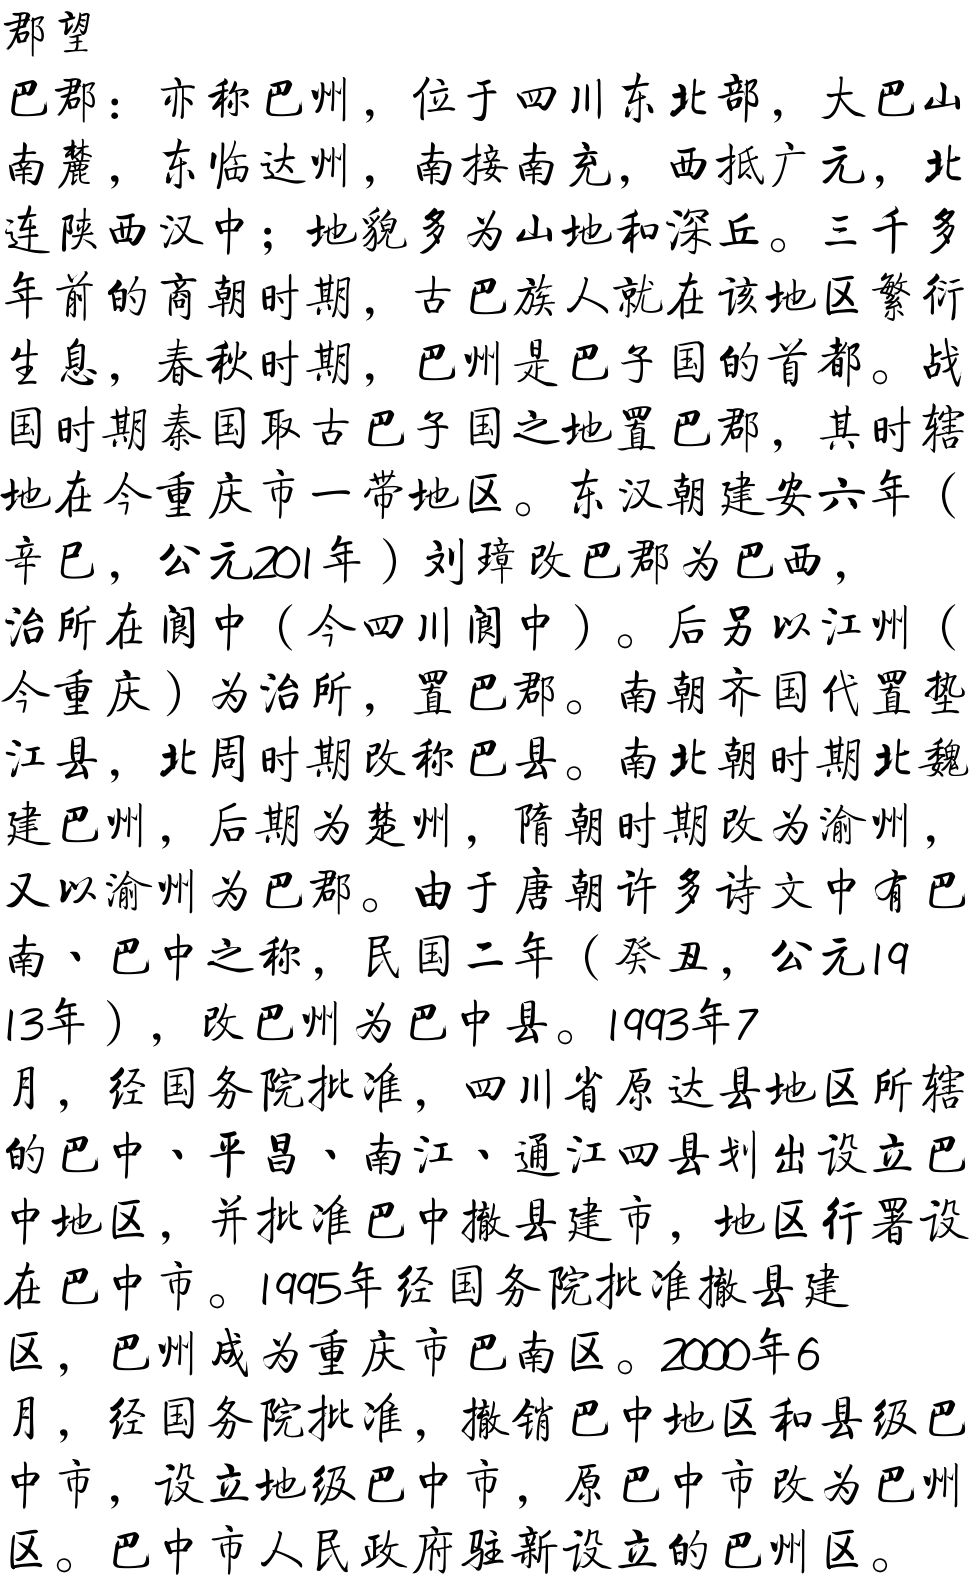 郡望
巴郡：亦称巴州，位于四川东北部，大巴山
南麓，东临达州，南接南充，西抵广元，北
连陕西汉中；地貌多为山地和深丘。三千多
年前的商朝时期，古巴族人就在该地区繁衍
生息，春秋时期，巴州是巴子国的首都。战
国时期秦国取古巴子国之地置巴郡，其时辖
地在今重庆市一带地区。东汉朝建安六年（
辛巳，公元201年）刘璋改巴郡为巴西，
治所在阆中（今四川阆中）。后另以江州（
今重庆）为治所，置巴郡。南朝齐国代置垫
江县，北周时期改称巴县。南北朝时期北魏
建巴州，后期为楚州，隋朝时期改为渝州，
又以渝州为巴郡。由于唐朝许多诗文中有巴
南、巴中之称，民国二年（癸丑，公元19
13年），改巴州为巴中县。1993年7
月，经国务院批准，四川省原达县地区所辖
的巴中、平昌、南江、通江四县划出设立巴
中地区，并批准巴中撤县建市，地区行署设
在巴中市。1995年经国务院批准撤县建
区，巴州成为重庆市巴南区。2000年6
月，经国务院批准，撤销巴中地区和县级巴
中市，设立地级巴中市，原巴中市改为巴州
区。巴中市人民政府驻新设立的巴州区。